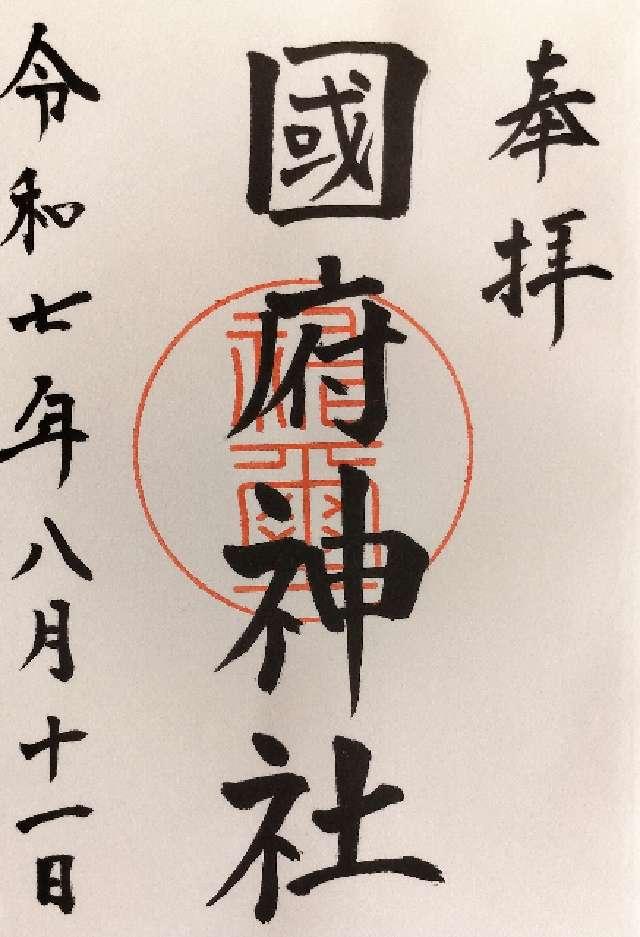 奉拝
國府神社
神璽
令和七年八月十一日